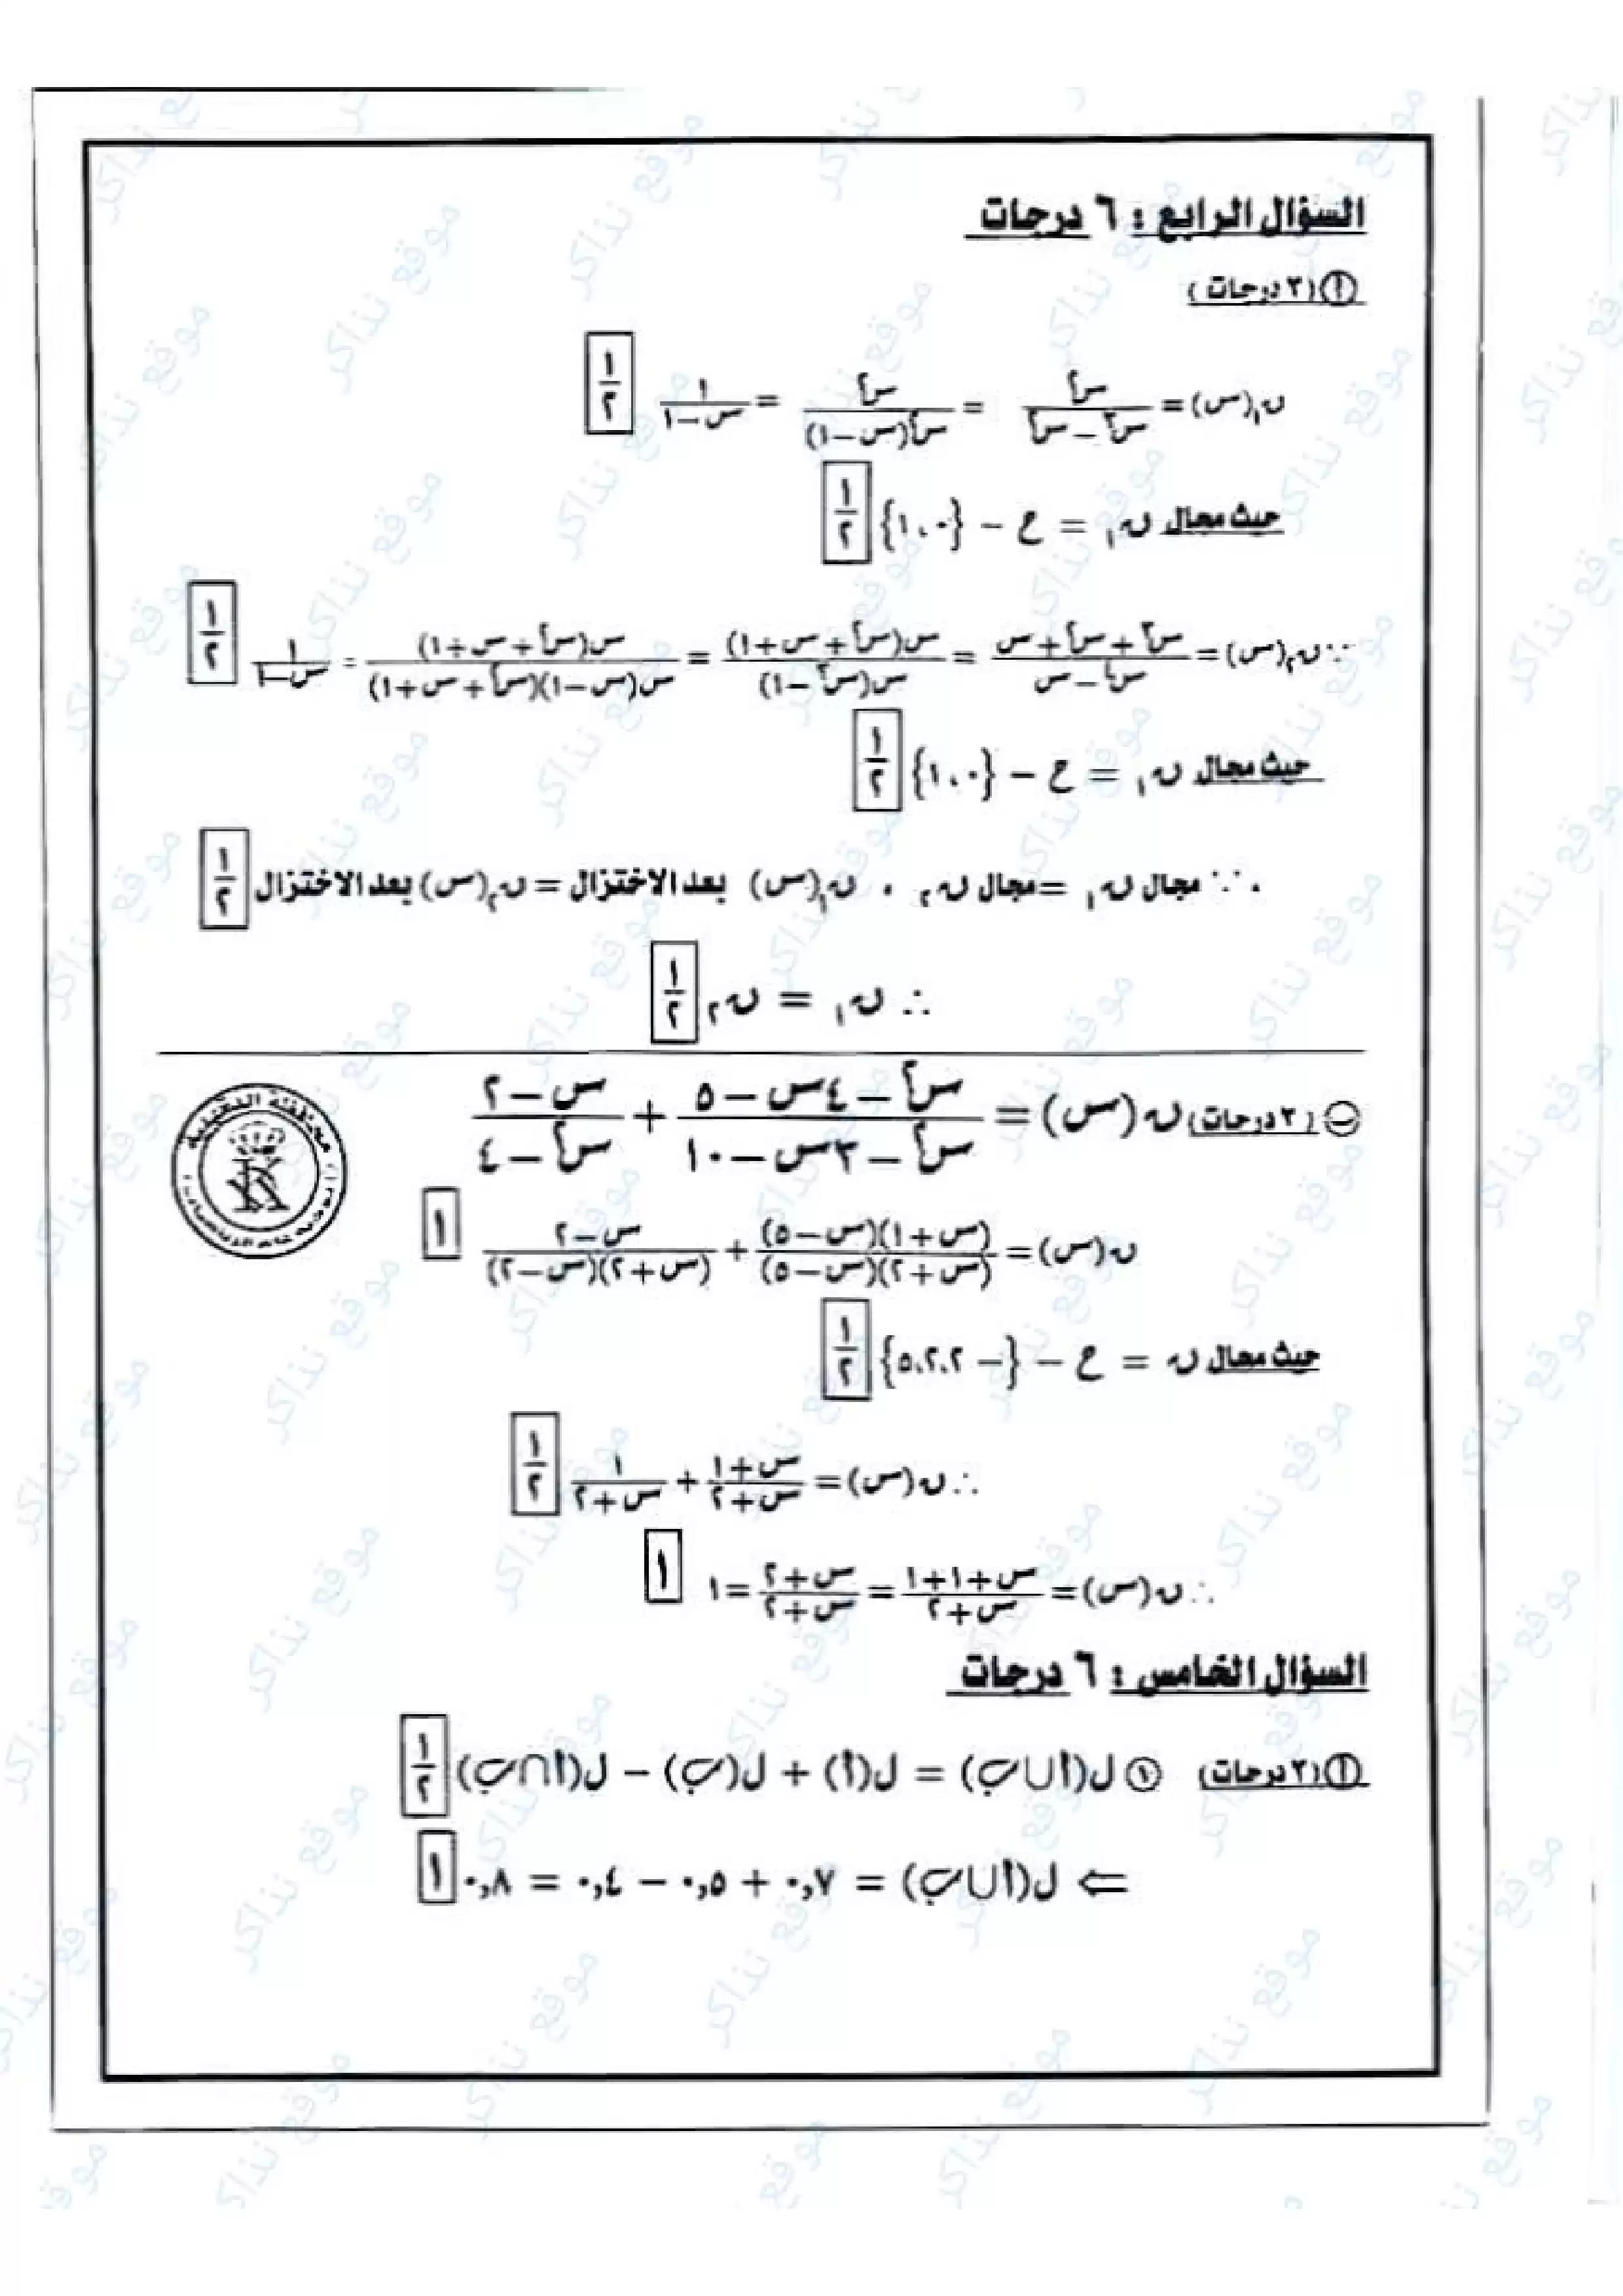 السؤال الرابع : ٦ درجات
أ (٣ درجات)
ن١(س) = س٢ / (س٣ − س٢) = س٢ / س٢(س − ١) = ١ / (س − ١) [١/٢]
حيث مجال ن١ = ح − {١،٠} [١/٢]
∵ ن٢(س) = (س٣ + س٢ + س) / (س٤ − س) = س(س٢ + س + ١) / س(س٣ − ١) = س(س٢ + س + ١) / س(س − ١)(س٢ + س + ١) = ١ / (س − ١) [١/٢]
حيث مجال ن١ = ح − {١،٠} [١/٢]
∵ مجال ن١ = مجال ن٢ ، ن١(س) بعد الاختزال = ن٢(س) بعد الاختزال [١/٢]
∴ ن١ = ن٢ [١/٢]
ب (٣ درجات) ن(س) = (س٢ − ٤س − ٥) / (س٢ − ٣س − ١٠) + (س − ٢) / (س٢ − ٤)
ن(س) = (س + ١)(س − ٥) / (س + ٢)(س − ٥) + (س − ٢) / (س + ٢)(س − ٢) [١]
حيث مجال ن = ح − {−٥،٢،٢} [١/٢]
∴ ن(س) = (س + ١) / (س + ٢) + ١ / (س + ٢) [١/٢]
∴ ن(س) = (س + ١ + ١) / (س + ٢) = (س + ٢) / (س + ٢) = ١ [١]
السؤال الخامس : ٦ درجات
أ (٣ درجات) ① ل(أ∪ب) = ل(أ) + ل(ب) − ل(أ∩ب) [١/٢]
⇐ ل(أ∪ب) = ٠,٧ + ٠,٥ − ٠,٤ = ٠,٨ [١]
موقع نذاكر